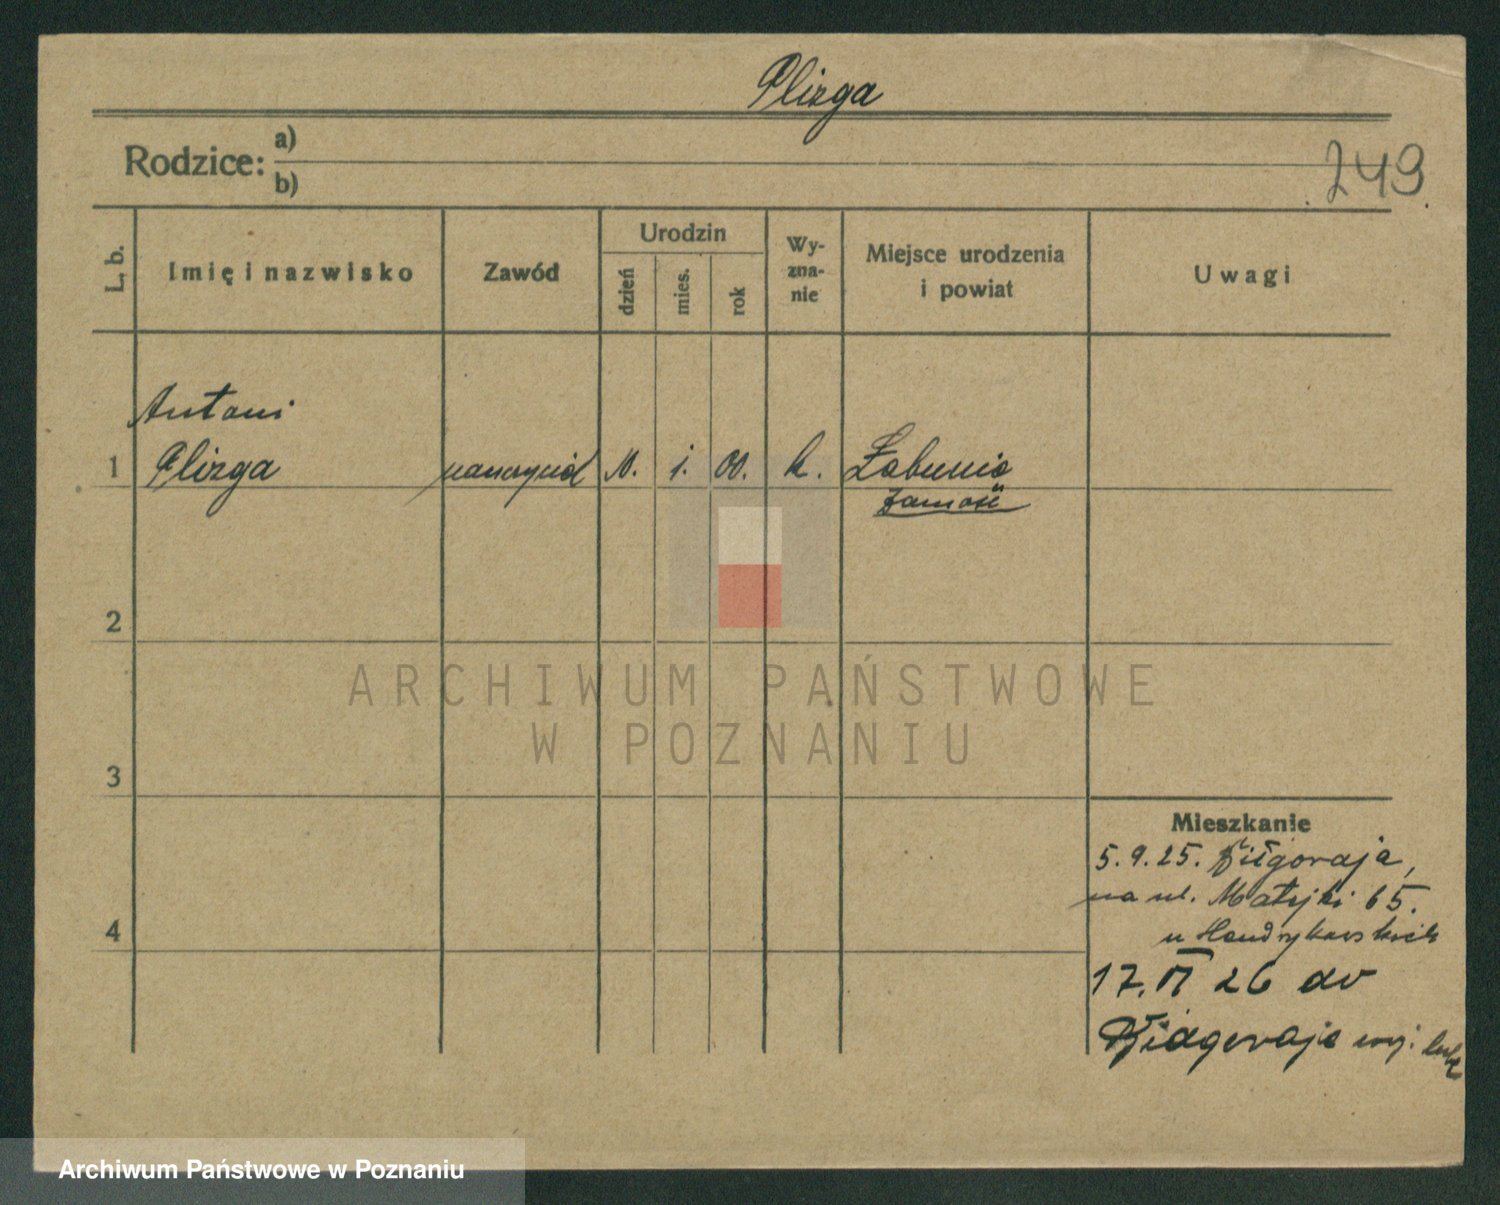 Plizga
Rodzice: a)
b)
249
L. b.
Imię i nazwisko
Zawód
Urodzin
dzień
mies.
rok
Wy-
zna-
nie
Miejsce urodzenia
i powiat
Uwagi
Antoni
1 Plizga nauczyciel 11. 1. 00. k. Łabunie
Zamość
2
3
4
Mieszkanie
5.9.25. Biłgoraja,
na ul. Matejki 65.
u
17. VI 26 do
woj. lub
ARCHIWUM PAŃSTWOWE
W POZNANIU
Archiwum Państwowe w Poznaniu